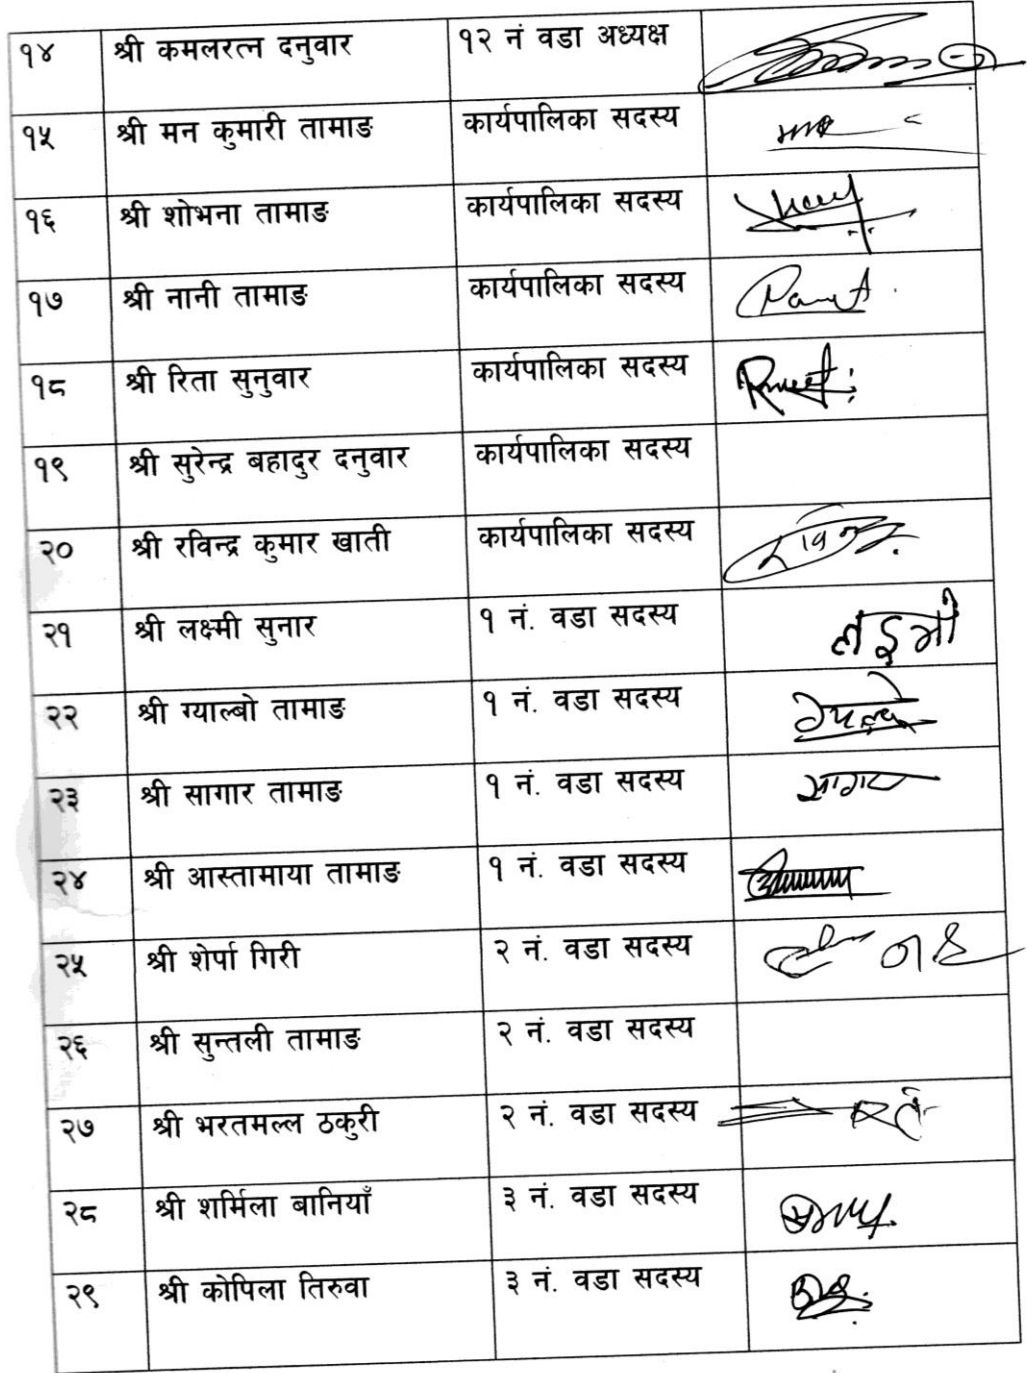 १४ श्री कमलरत्न दनुवार १२ नं वडा अध्यक्ष
१५ श्री मन कुमारी तामाङ कार्यपालिका सदस्य
१६ श्री शोभना तामाङ कार्यपालिका सदस्य
१७ श्री नानी तामाङ कार्यपालिका सदस्य
१८ श्री रिता सुनुवार कार्यपालिका सदस्य
१९ श्री सुरेन्द्र बहादुर दनुवार कार्यपालिका सदस्य
२० श्री रविन्द्र कुमार खाती कार्यपालिका सदस्य
२१ श्री लक्ष्मी सुनार १ नं. वडा सदस्य
२२ श्री ग्याल्बो तामाङ १ नं. वडा सदस्य
२३ श्री सागार तामाङ १ नं. वडा सदस्य सागर
२४ श्री आस्तामाया तामाङ १ नं. वडा सदस्य
२५ श्री शेर्पा गिरी २ नं. वडा सदस्य
२६ श्री सुन्तली तामाङ २ नं. वडा सदस्य
२७ श्री भरतमल्ल ठकुरी २ नं. वडा सदस्य
२८ श्री शर्मिला बानियाँ ३ नं. वडा सदस्य
२९ श्री कोपिला तिरुवा ३ नं. वडा सदस्य